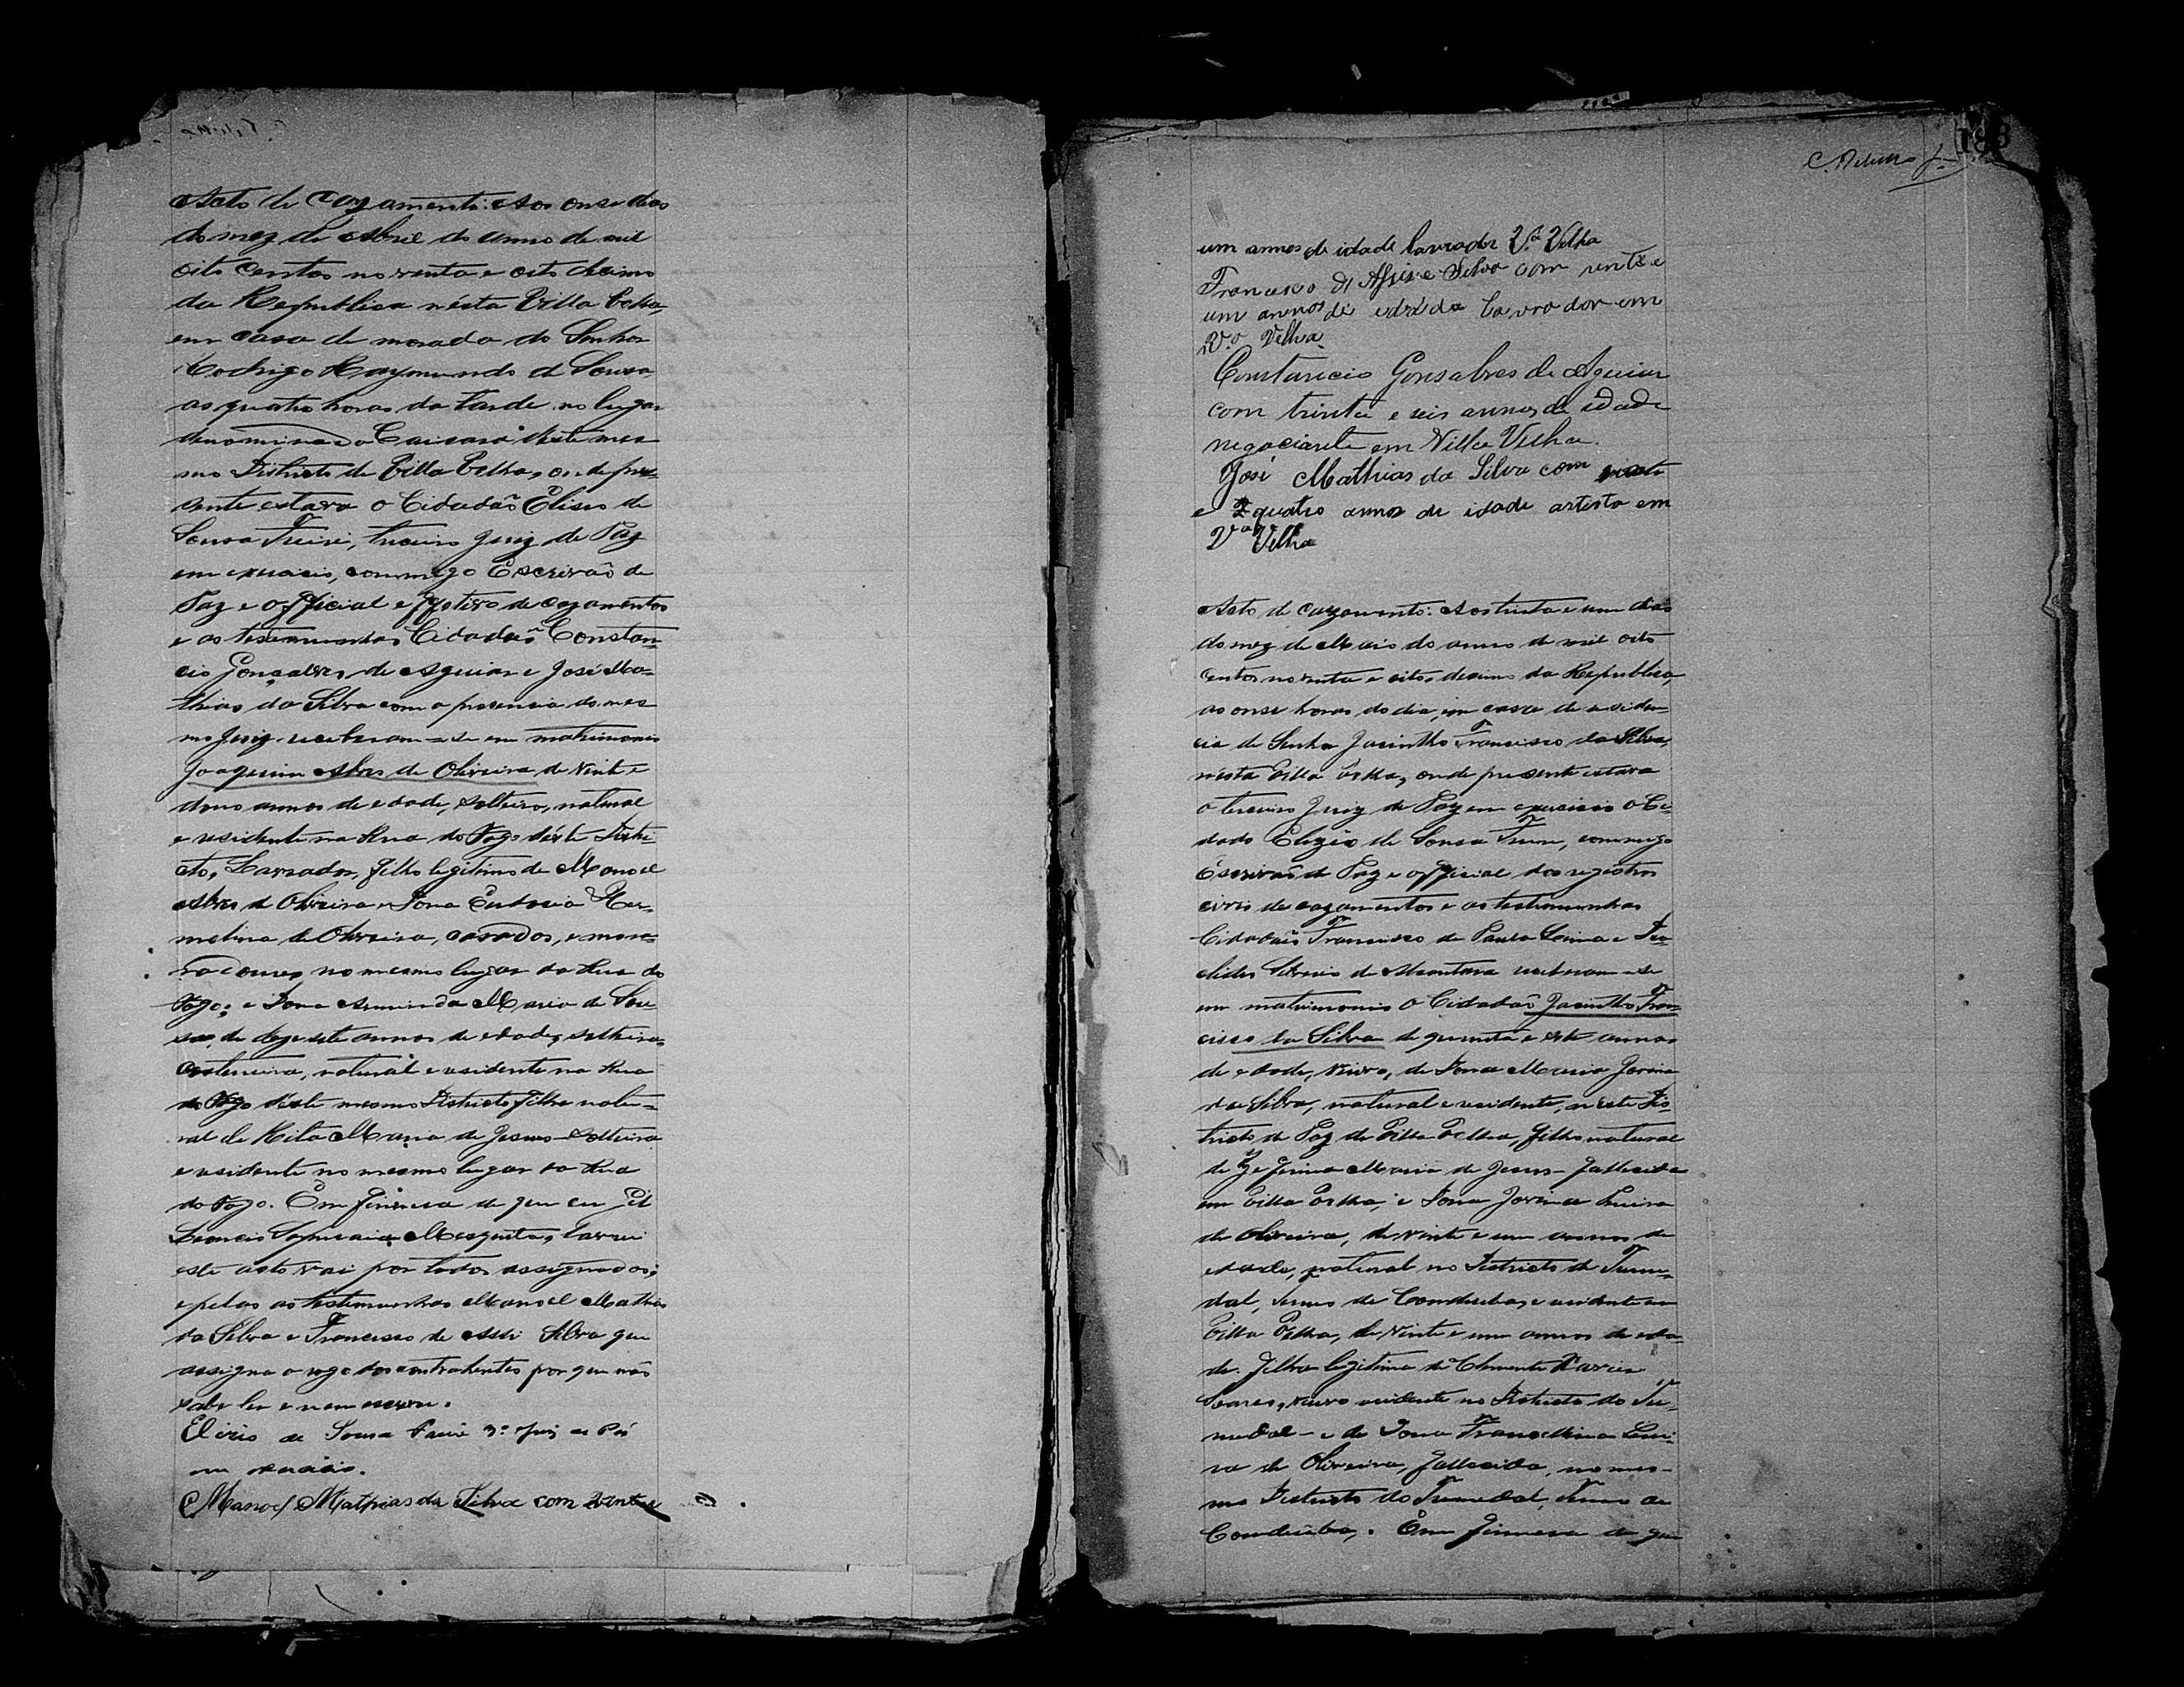 Acto de cazamento: Aos onse dias
do mez de Abril do anno de mil
oito centos noventa e oito decimo
da Republica nésta Villa Velha,
em casa de morada do Senhor
Rodrigo Raymundo de Sousa
as quatro horas da tarde no lugar
denominado deste mes
mo Districto de Villa Velha, onde pre-
sente estava o Cidadão Elisio de
Sousa Freire, terceiro Juiz de Paz
em exercicio, commigo Escrivão de
Paz e official de cazamentos
e as testemunhas Cidadãos Constan-
cio Gonçalves de Aguiar e José Ma-
thias da Silva com a presencia do mes
mo Juiz receberam-se em matrimonio
Joaquim Alves de Oliveira de vinte e
dous annos de edade, solteiro, natural
e residente na Rua do Fogo déste Distri-
cto, Lavrador, filho legitimo de Manoel
Alves de Oliveira e Dona
de Oliveira, casados, e mora-
dores no mesmo lugar da Rua do
Fogo; e Dona Maria de Sou-
sa, de dezesete annos de edade, solteira,
costureira, natural e residente na Rua
do Fogo déste mesmo Districto filha natu-
ral de Rita Maria de Jesus solteira
e residente no mesmo lugar da Rua
do Fogo. Em firmesa de que eu
Mesquita, lavrei
este acto vai por todos assignados;
e pelas as testemunhas Manoel Mathias
da Silva e Francisco de Assis Silva que
assigna a rogo dos contrahentes por que não
sabe ler e nem escrever.
Elisio de Sousa Freire 3º Juiz de Páz
em exercicio.
Manoel Mathias da Silva com vinte e
183
um annos de idade lavrador Vª Velha
Francisco di Assis e Silva com vinte e
um annos de edade Lavrador em
Vª Velha
Constancio Gonsalves de Aguiar
com trinta e seis annos de idade
negociante em Villa Velha.
José Mathias da Silva com vinte
e quatro annos de idade artista em
Vª Velha
Acto de cazamento: Aos trinta e um dias
do mez de Maio do anno de mil oito
centos noventa e oito, decimo da Republica,
as onse horas do dia, em casa de residen-
cia de Senhor Jacintho Francisco da Silva,
nésta Villa Velha, onde presente estava
o terceiro Juiz de Paz em exercicio o Ci-
dadão Elizio de Sousa Freire, commigo
Escrivão de Paz e official dos registros
civis de cazamentos e as testemunhas
Cidadãos Francisco de Paula Lima e
receberam-se
em matrimonio o Cidadão Jacintho Fran-
cisco da Silva de quarenta e sete annos
de edade, viuvo, de Dona Maria Jovina
da Silva, natural e residente, néste Dis-
tricto de Paz de Villa Velha, filho natural
de Zeferina Maria de Jesus fallecida
em Villa Velha; e Dona Jovina
de Oliveira, de vinte e um annos de
edade, natural no Districto do Treme-
dal, Termo de Condeúba, e residente em
Villa Velha, de vinte e um annos de eda-
de. filha legitima de Clemente
Soares, viuvo residente no Districto do Tre-
medal - e de Dona Francellina
de Oliveira, fallecida, no mes-
mo Districto do Tremedal, Termo de
Condeúba. Em firmesa de que